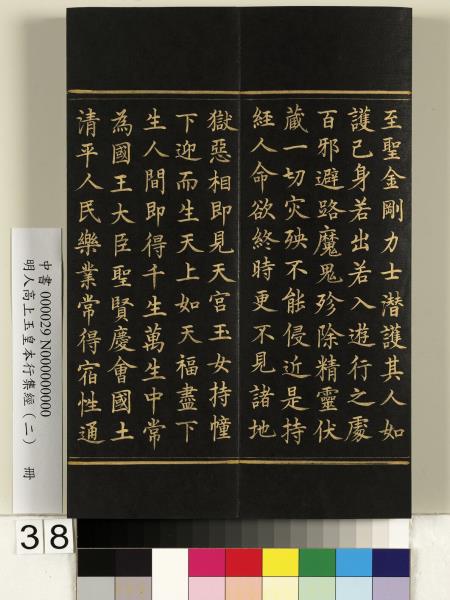 至聖金剛力士潛護其人如
護己身若出若入遊行之處
百邪避路魔鬼殄除精靈伏
藏一切灾殃不能侵近是持
經人命欲終時更不見諸地
獄惡相即見天宫玉女持幢
下迎而生天上如天福盡下
生人間即得千生萬生中常
為國王大臣聖賢慶會國土
清平人民樂業常得宿性通
中書 000029 N000000000
明人高上玉皇本行集經(二) 冊
38